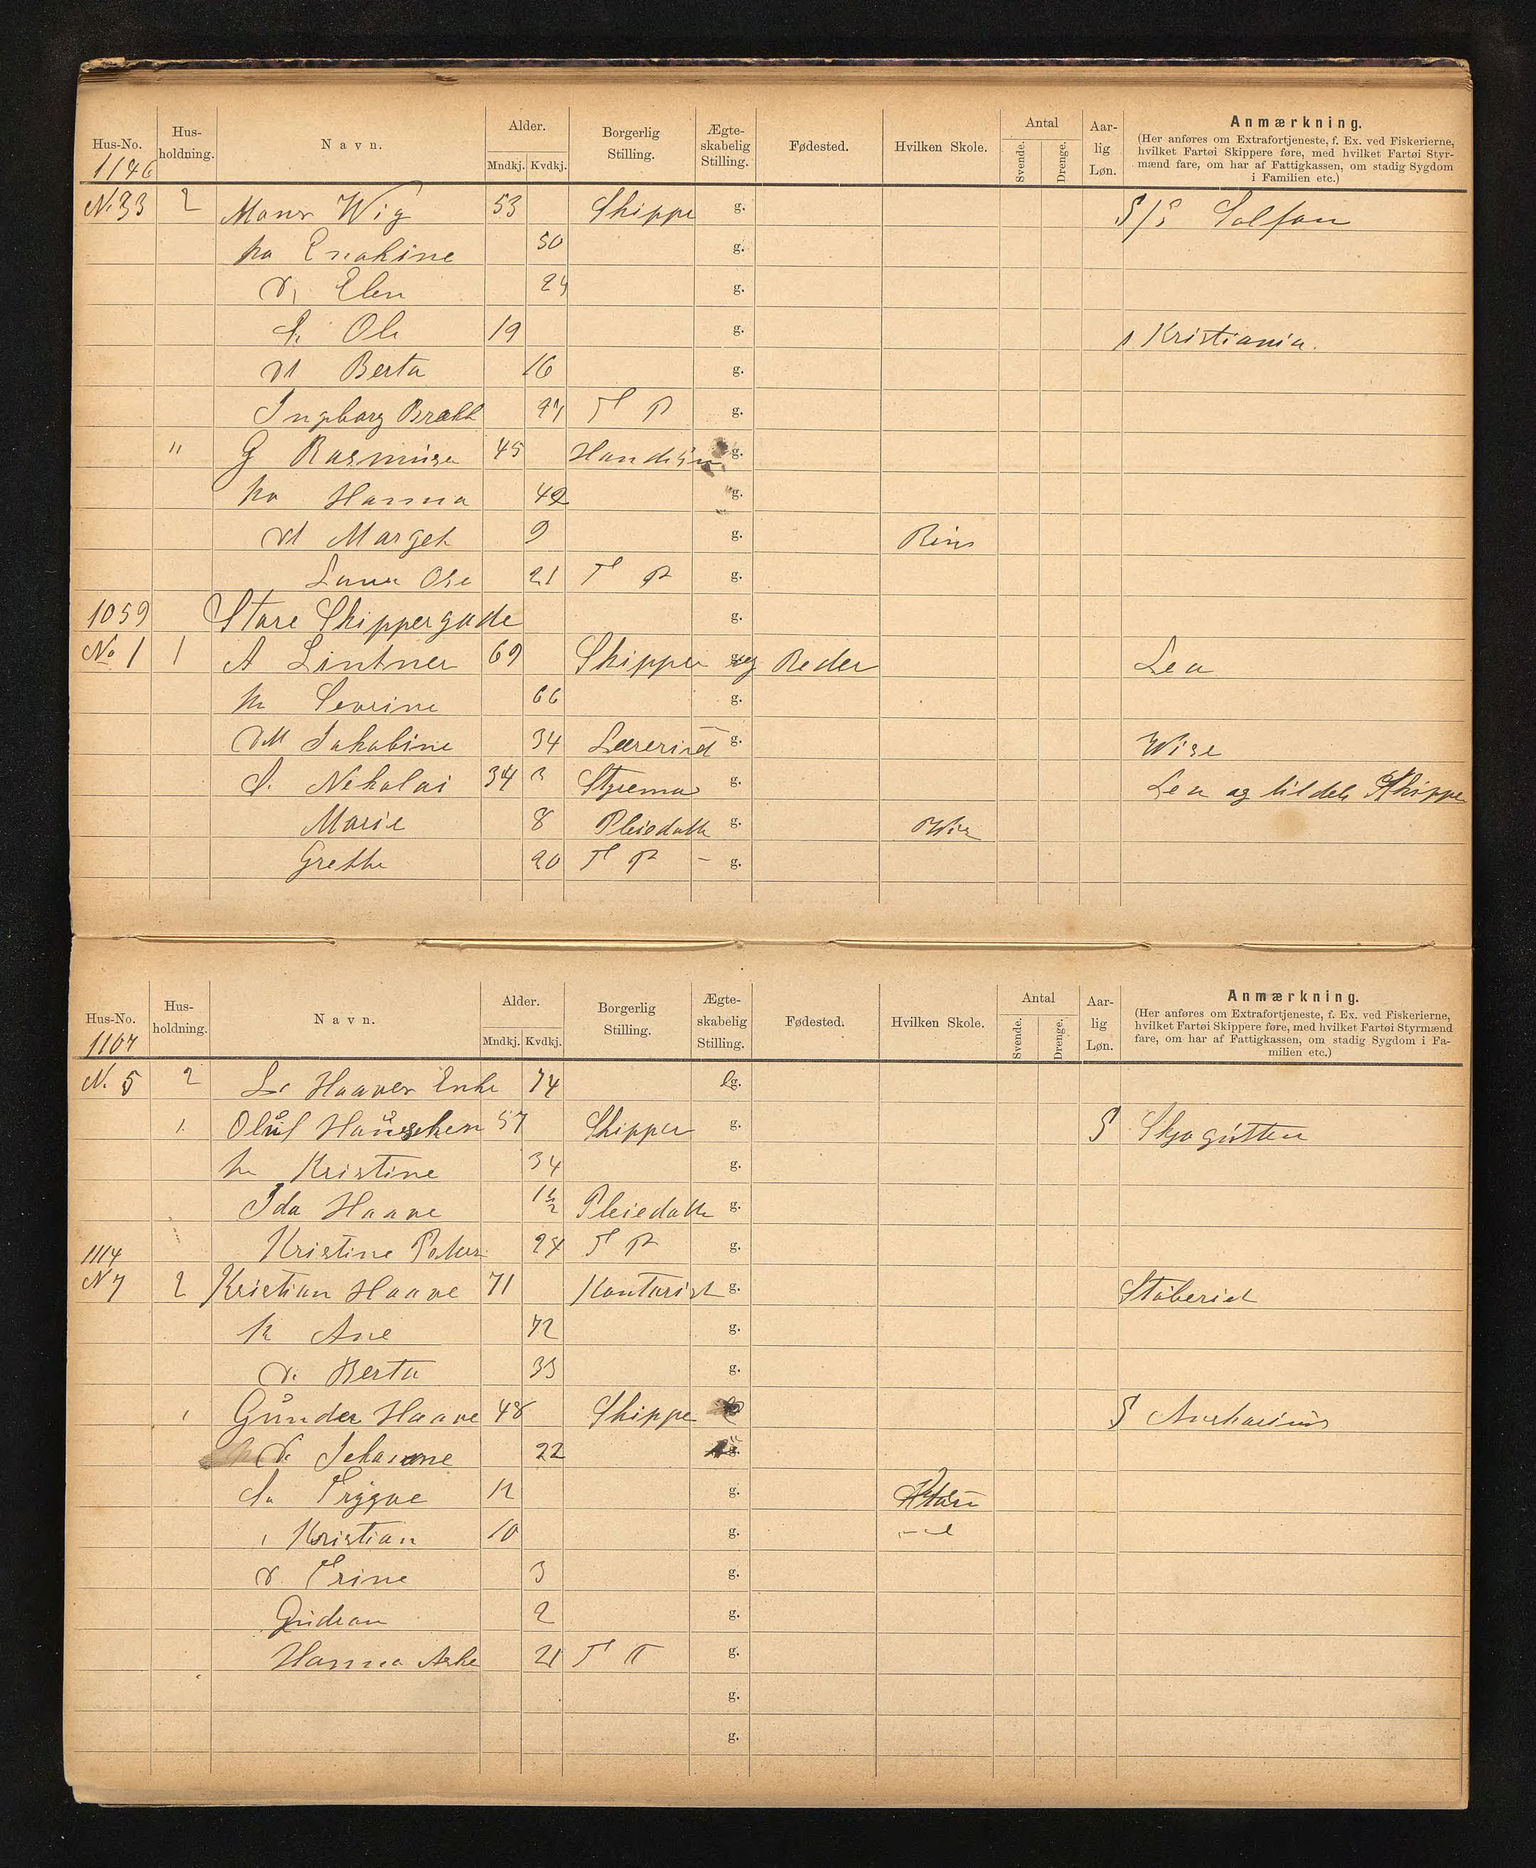 Hus-No. Hus-holdning. Navn. Alder. Mndkj. Kvdkj. Borgerlig Stilling. Ægte-skabelig Stilling. Fødested. Hvilken Skole. Antal Svende. Drenge. Aar-lig Løn. Anmærkning.
(Her anføres om Extrafortjeneste, f. Ex. ved Fiskerierne, hvilket Fartøi Skippere føre, med hvilket Fartøi Styrmænd fare, om har af Fattigkassen, om stadig Sygdom i Familien etc.)
1146
No 33 2 Mons Wig 53 Skippe g. S/S
ho 50 g.
d. Elen 24 g.
S. Ole 19 g. s Kristiania.
dt Berta 16 g.
Ingborg 27 T P g.
" G Rasmuse 45 g.
ho Hanna 42 g.
dt Marget 9 g.
Ose 21 T P g.
1059 Store Skippergade g.
No 1 1 A Lintner 69 Skipper og Reder Lea
h Severine 66 g.
dtt Jakobine 34 Lærerind g. Wise
S. Nekolai 34 3 Styrema g. Lea og tildels Skippe
Marie 8 Pleiedatt g.
Grethe 20 T P - g.
Hus-No. Hus-holdning. Navn. Alder. Mndkj. Kvdkj. Borgerlig Stilling. Ægte-skabelig Stilling. Fødested. Hvilken Skole. Antal Svende. Drenge. Aar-lig Løn. Anmærkning.
(Her anføres om Extrafortjeneste, f. Ex. ved Fiskerierne, hvilket Fartøi Skippere føre, med hvilket Fartøi Styrmænd fare, om har af Fattigkassen, om stadig Sygdom i Familien etc.)
1107
N. 5 2 L. Haaves Enke 74 g.
1. Oluf 57 Skipper g. S Skjøgutten
h Kristine 34 g.
Ida Haave Pleiedatt g.
Kristine Peters 24 T P g.
1114
N 7 2 Kristian Haave 71 Kontorist g.
h Ane 72 g.
d. Berta 33 g.
1 Gunder Haave 48 Skippe S
d. 22 g.
S. Trygve 12 g.
Kristian 10 g.
d. Trine 3 g.
Gudrun 2 g.
Hanna Aske 21 T P g.
g.
g.